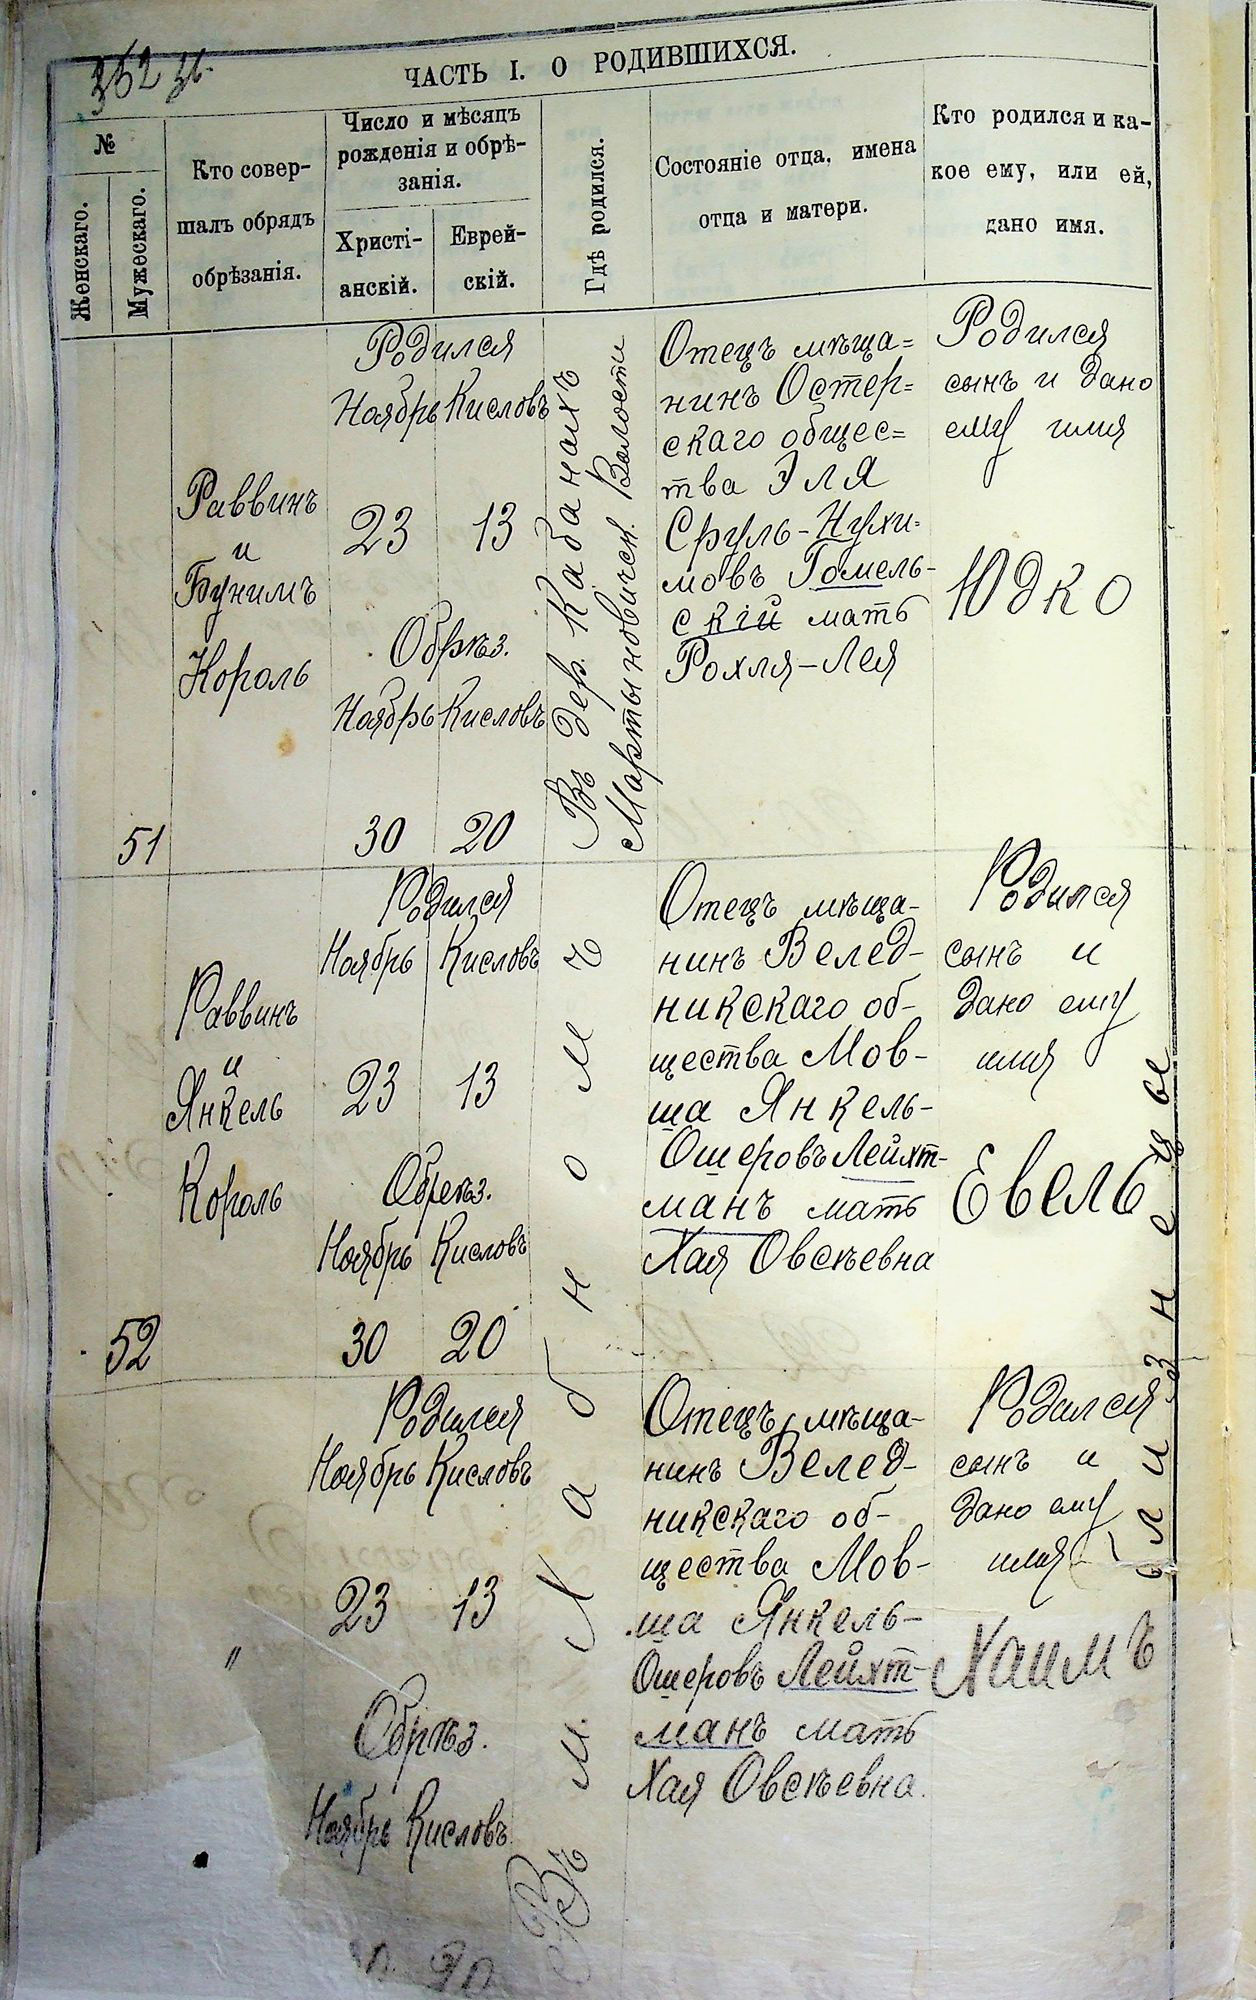 ЧАСТЬ I. О РОДИВШИХСЯ.
№
Женскаго.
Мужескаго.
Кто совер-
шалъ обрядъ
обрѣзанія.
Число и мѣсяцъ
рожденія и обрѣ-
занія.
Христі-
анскій.
Еврей-
скій.
Гдѣ родился.
Состояніе отца, имена
отца и матери.
Кто родился и ка-
кое ему, или ей,
дано имя.
51
Раввинъ
и
Бунимъ
Король
Родился
Ноябрь Кисловъ
23 13
Обрѣз.
Ноябрь Кисловъ
30 20
Въ дер. Кабанахъ
Мартыновическ. Волости
Отецъ мѣща=
нинъ Остер=
скаго общес=
тва Эля
Сруль-Нухи-
мовъ Гомель-
скій мать
Рохля-Лея
Родился
сынъ и дано
ему имя
Юдко
52
Раввинъ
и
Янкель
Король
Родился
Ноябрь Кисловъ
23 13
Обрѣз.
Ноябрь Кисловъ
30 20
Въ м. Хабномъ
Отецъ мѣща-
нинъ Велед-
никскаго об-
щества Мов-
ша Янкель-
Ошеровъ Лейхт-
манъ мать
Хая Овсѣевна
Родился
сынъ и
дано ему
имя
Евель
близнецы
"
Родился
Ноябрь Кисловъ
23 13
Обрѣз.
Ноябрь Кисловъ
Отецъ мѣща-
нинъ Велед-
никскаго об-
щества Мов-
ша Янкель-
Ошеровъ Лейхт-
манъ мать
Хая Овсѣевна.
Родился
сынъ и
дано ему
имя
Хаимъ